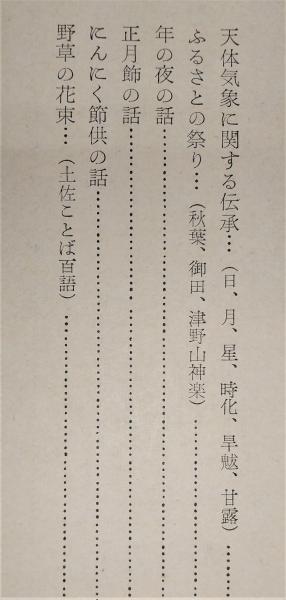 天体気象に関する伝承…（日、月、星、時化、旱魃、甘露）…………
ふるさとの祭り…（秋葉、御田、津野山神楽）…………………………
年の夜の話………………………………………………………………
正月節の話………………………………………………………………
にんにく節供の話………………………………………………………
野草の花束…（土佐ことば百語）………………………………………